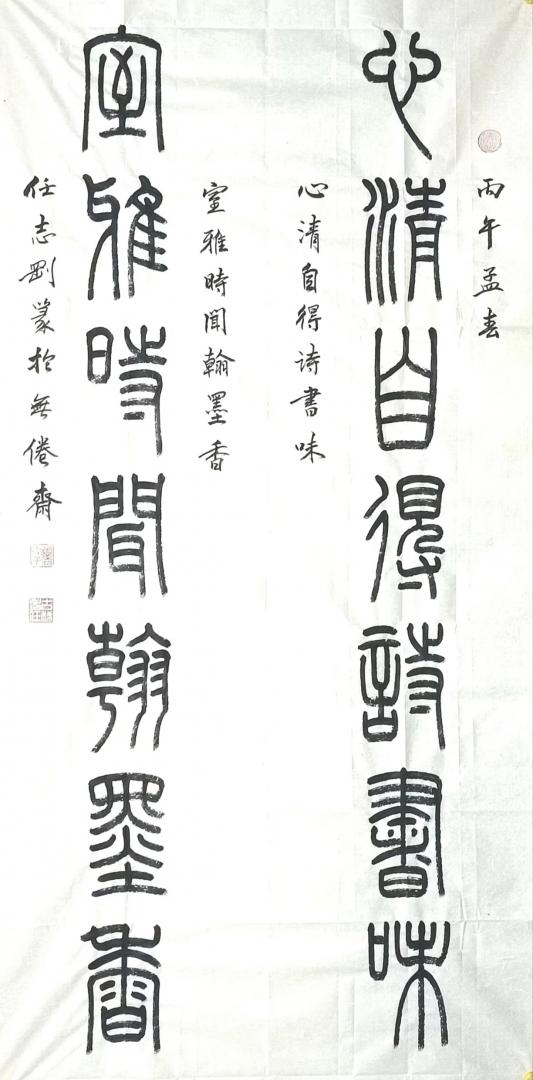 丙午孟春
心清自得詩書味
心清自得诗書味
室雅時聞翰墨香
室雅時聞翰墨香
任志剛篆於無倦齋